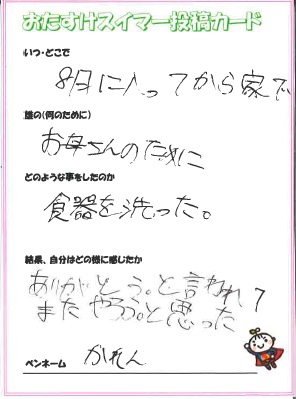 おたすけスイマー投稿カード
いつ・どこで
8月に入ってから家で
誰の(何のために)
お母さんのために
どのような事をしたのか
食器を洗った。
結果、自分はどの様に感じたか
ありがとう。と言われて
またやろう。と思った
ペンネーム かれん